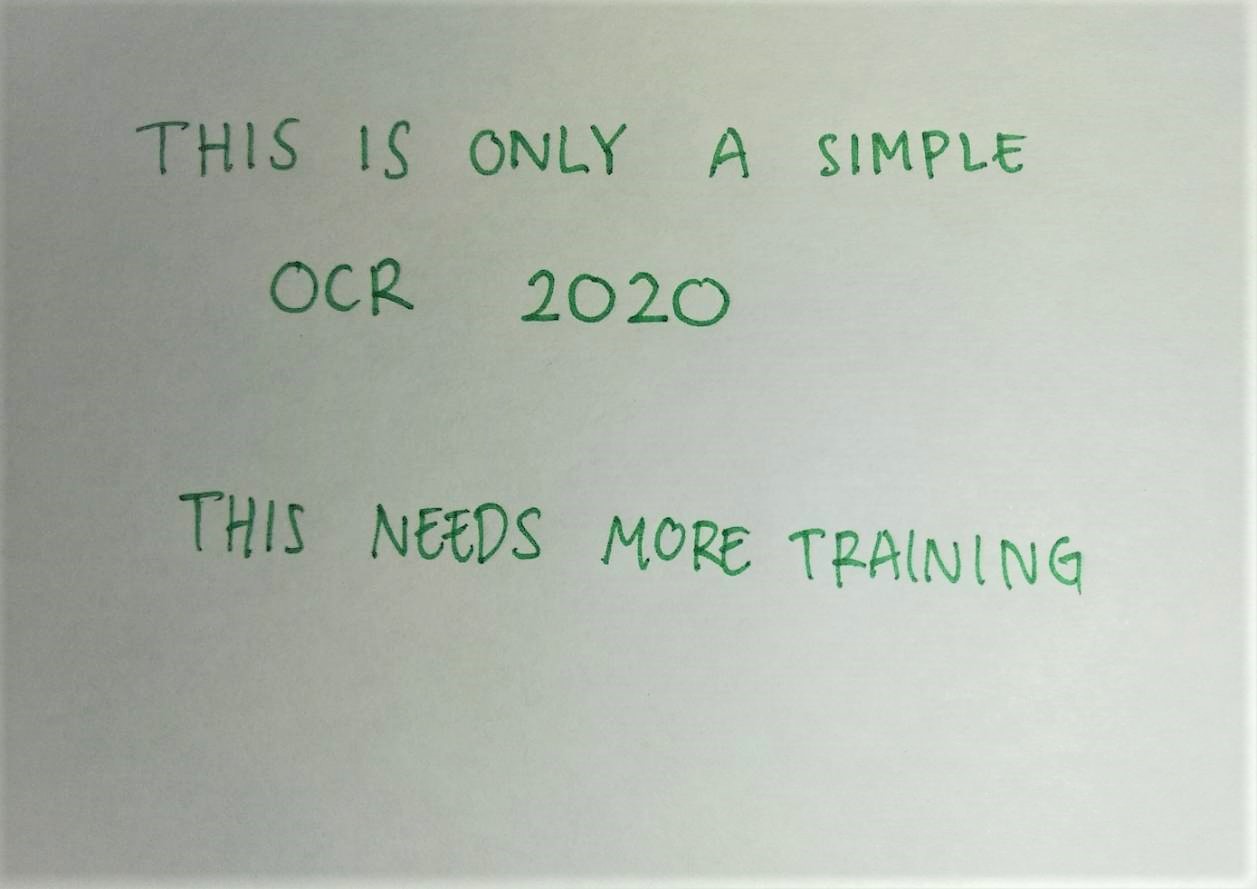 THIS IS ONLY A SIMPLE
OCR 2020
THIS NEEDS MORE TRAINING